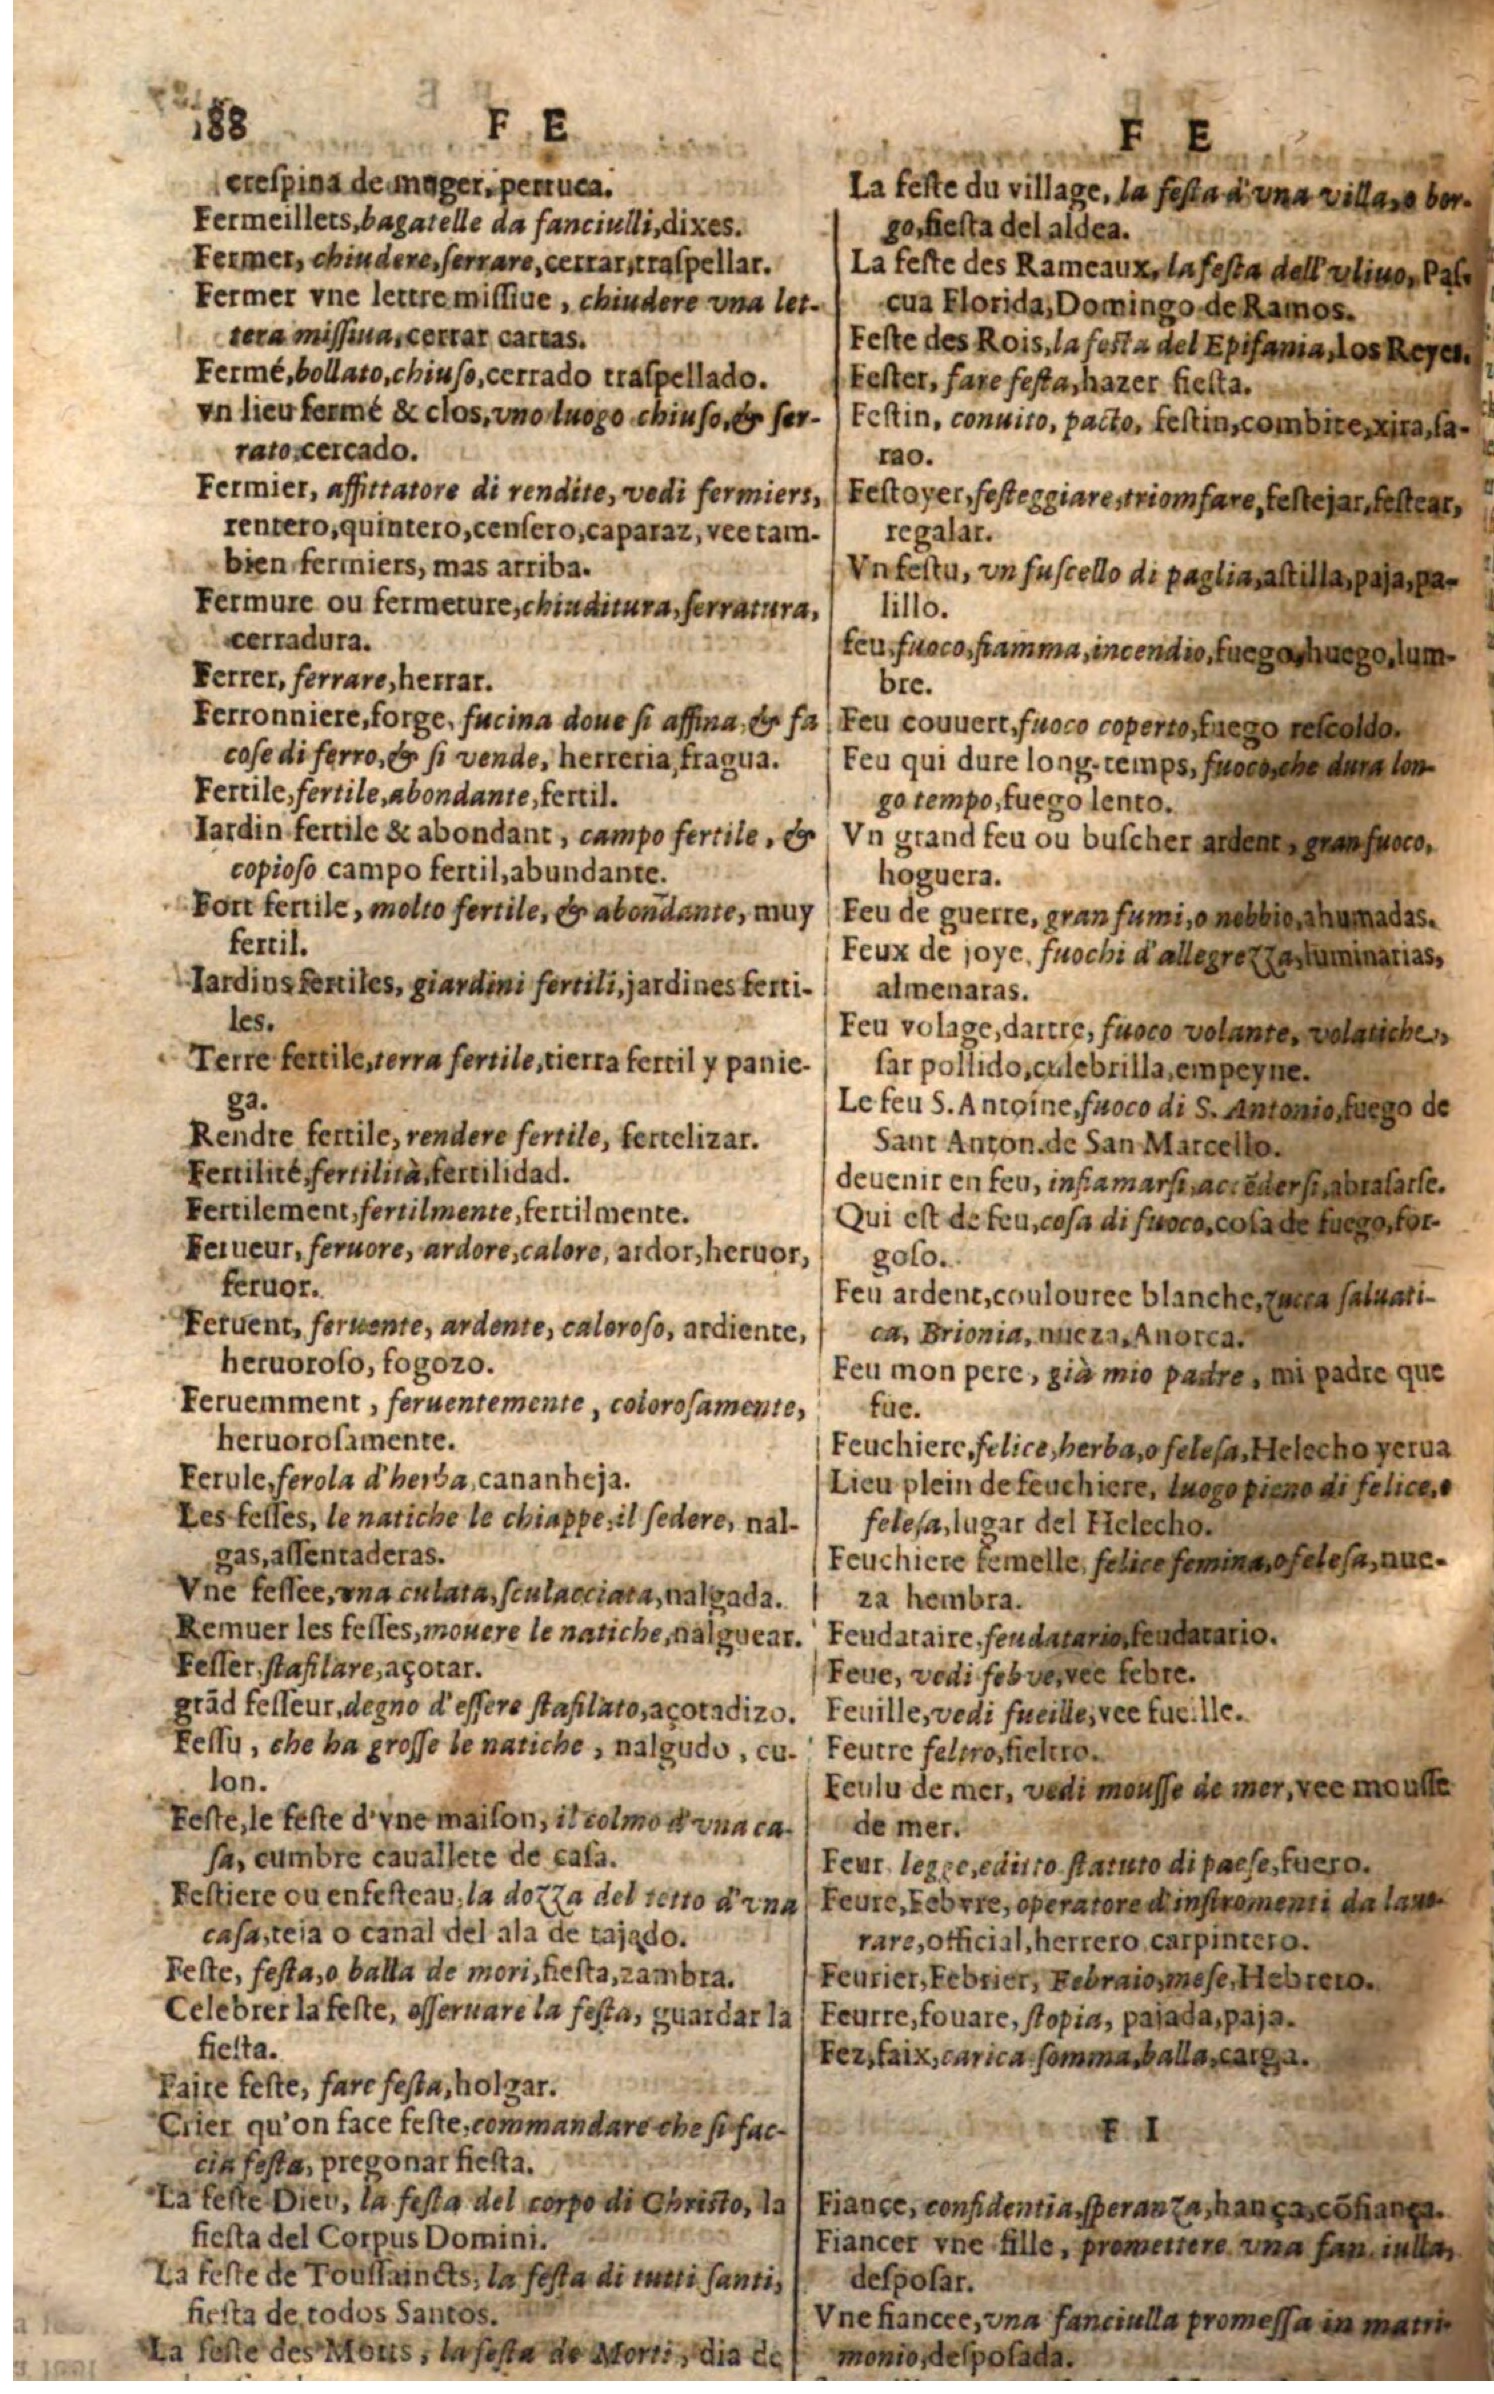 188 F E
crespina de muger, perruca.
Fermeillets, bagatelle da fanciulli, dixes.
Fermer, chiudere, serrare, cerrar, traspellar.
Fermer vne lettre missiue, chiudere vna let-
tera missiua, cerrar cartas.
Fermé, bollato, chiuso, cerrado traspellado.
vn lieu fermé & clos, vno luogo chiuso, & ser-
rato, cercado.
Fermier, affittatore di rendite, vedi fermiers,
rentero, quintero, censero, caparaz, vee tam-
bien fermiers, mas arriba.
Fermure ou fermeture, chiuditura, serratura,
cerradura.
Ferrer, ferrare, herrar.
Ferronniere, forge, fucina doue si affina, & fa
cose di ferro, & si vende, herreria, fragua.
Fertile, fertile, abondante, fertil.
Iardin fertile & abondant, campo fertile, &
copioso campo fertil, abundante.
Fort fertile, molto fertile, & abondante, muy
fertil.
Iardins fertiles, giardini fertili, jardines ferti-
les.
Terre fertile, terra fertile, tierra fertil y panie-
ga.
Rendre fertile, rendere fertile, fertelizar.
Fertilité, fertilità, fertilidad.
Fertilement, fertilmente, fertilmente.
Ferueur, feruore, ardore, calore, ardor, heruor,
feruor.
Feruent, feruente, ardente, caloroso, ardiente,
heruoroso, fogozo.
Feruemment, feruentemente, colorosamente,
heruorosamente.
Ferule, ferola d'herba, cananheja.
Les fesses, le natiche le chiappe, il sedere, nal-
gas, assentaderas.
Vne fessee, vna culata, sculacciata, nalgada.
Remuer les fesses, mouere le natiche, nalguear.
Fesser, stafilare, açotar.
grād fesseur, degno d'essere stafilato, açotadizo.
Fessu, che ha grosse le natiche, nalgudo, cu-
lon.
Feste, le feste d'vne maison, il colmo d'vna ca-
sa, cumbre cauallete de casa.
Festiere ou enfesteau, la dozza del tetto d'vna
casa, teia o canal del ala de tajado.
Feste, festa, o balla de mori, fiesta, zambra.
Celebrer la feste, osseruare la festa, guardar la
fiesta.
Faire feste, fare festa, holgar.
Crier qu'on face feste, commandare che si fac-
cia festa, pregonar fiesta.
La feste Dieu, la festa del corpo di Christo, la
fiesta del Corpus Domini.
La feste de Toussaincts, la festa di tutti santi,
fiesta de todos Santos.
La feste des Morts, la festa de Morti, dia de
F E
La feste du village, la festa d'vna villa, o bor-
go, fiesta del aldea.
La feste des Rameaux, la festa dell'vliuo, Pas-
cua Florida, Domingo de Ramos.
Feste des Rois, la festa del Epifania, los Reyes.
Fester, fare festa, hazer fiesta.
Festin, conuito, pacto, festin, combite, xira, sa-
rao.
Festoyer, festeggiare, triomfare, festejar, festear,
regalar.
Vn festu, vn fuscello di paglia, astilla, paja, pa-
lillo.
feu, fuoco, fiamma, incendio, fuego, huego, lum-
bre.
Feu couuert, fuoco coperto, fuego rescoldo.
Feu qui dure long-temps, fuoco, che dura lon-
go tempo, fuego lento.
Vn grand feu ou buscher ardent, gran fuoco,
hoguera.
Feu de guerre, gran fumi, o nebbio, ahumadas.
Feux de joye, fuochi d'allegrezza, luminarias,
almenaras.
Feu volage, dartre, fuoco volante, volatiche,
sar pollido, culebrilla, empeyne.
Le feu S. Antoine, fuoco di S. Antonio, fuego de
Sant Anton. de San Marcello.
deuenir en feu, infiamarsi, accēdersi, abrasarse.
Qui est de feu, cosa di fuoco, cosa de fuego, for-
goso.
Feu ardent, coulouree blanche, zucca saluati-
ca, Brionia, nueza, Anorca.
Feu mon pere, già mio padre, mi padre que
fue.
Feuchiere, felice, herba, o felesa, Helecho yerua
Lieu plein de feuchiere, luogo pieno di felice, o
felesa, lugar del Helecho.
Feuchiere femelle, felice femina, o felesa, nue-
za hembra.
Feudataire, feudatario, feudatario.
Feue, vedi febve, vee febre.
Feuille, vedi fueille, vee fueille.
Feutre feltro, fieltro.
Feulu de mer, vedi mousse de mer, vee mousse
de mer.
Feur legge, editto statuto di paese, fuero.
Feure, Febvre, operatore d'instromenti da lauo-
rare, official, herrero carpintero.
Feurier, Febrier, Febraio, mese, Hebrero.
Feurre, fouare, stopia, pajada, paja.
Fez, faix, carica somma, balla, carga.
F I
Fiançe, confidentia, speranza, hança, cōfiança.
Fiancer vne fille, promettere vna fanciulla,
desposar.
Vne fiancee, vna fanciulla promessa in matri-
monio, desposada.